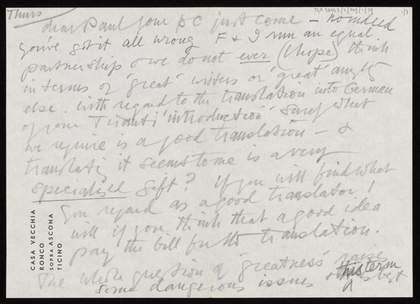 Thurs
dear Paul your pc just come – no indeed
you've got it all wrong F + I run an equal
partnership & we do not ever (I hope) think
in terms of 'great' writers or 'great' anything
else. with regard to the translation into German
of your Tiranti 'introduction' surely what
we require is a good translation – &
translating it seems to me is a very
specialised gift? If you will find what
you regard as a good translator I
will if you think that a good idea
pay the bill for the translation.
The whole question of 'greatness' raise
some dangerous issues
CASA VECCHIA
RONCO
SOPRA ASCONA
TICINO